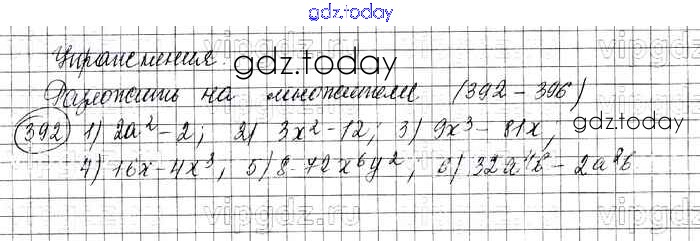 gdz.today
Упражнения.
gdz.today
Разложить на множители (392 - 396)
392 1) 2a² - 2; 2) 3x² - 12; 3) 9x³ - 81x;
gdz.today
4) 16x - 4x³; 5) 8 - 72x⁶y²; 6) 32a⁴b - 2a²b
vipgdz.ru